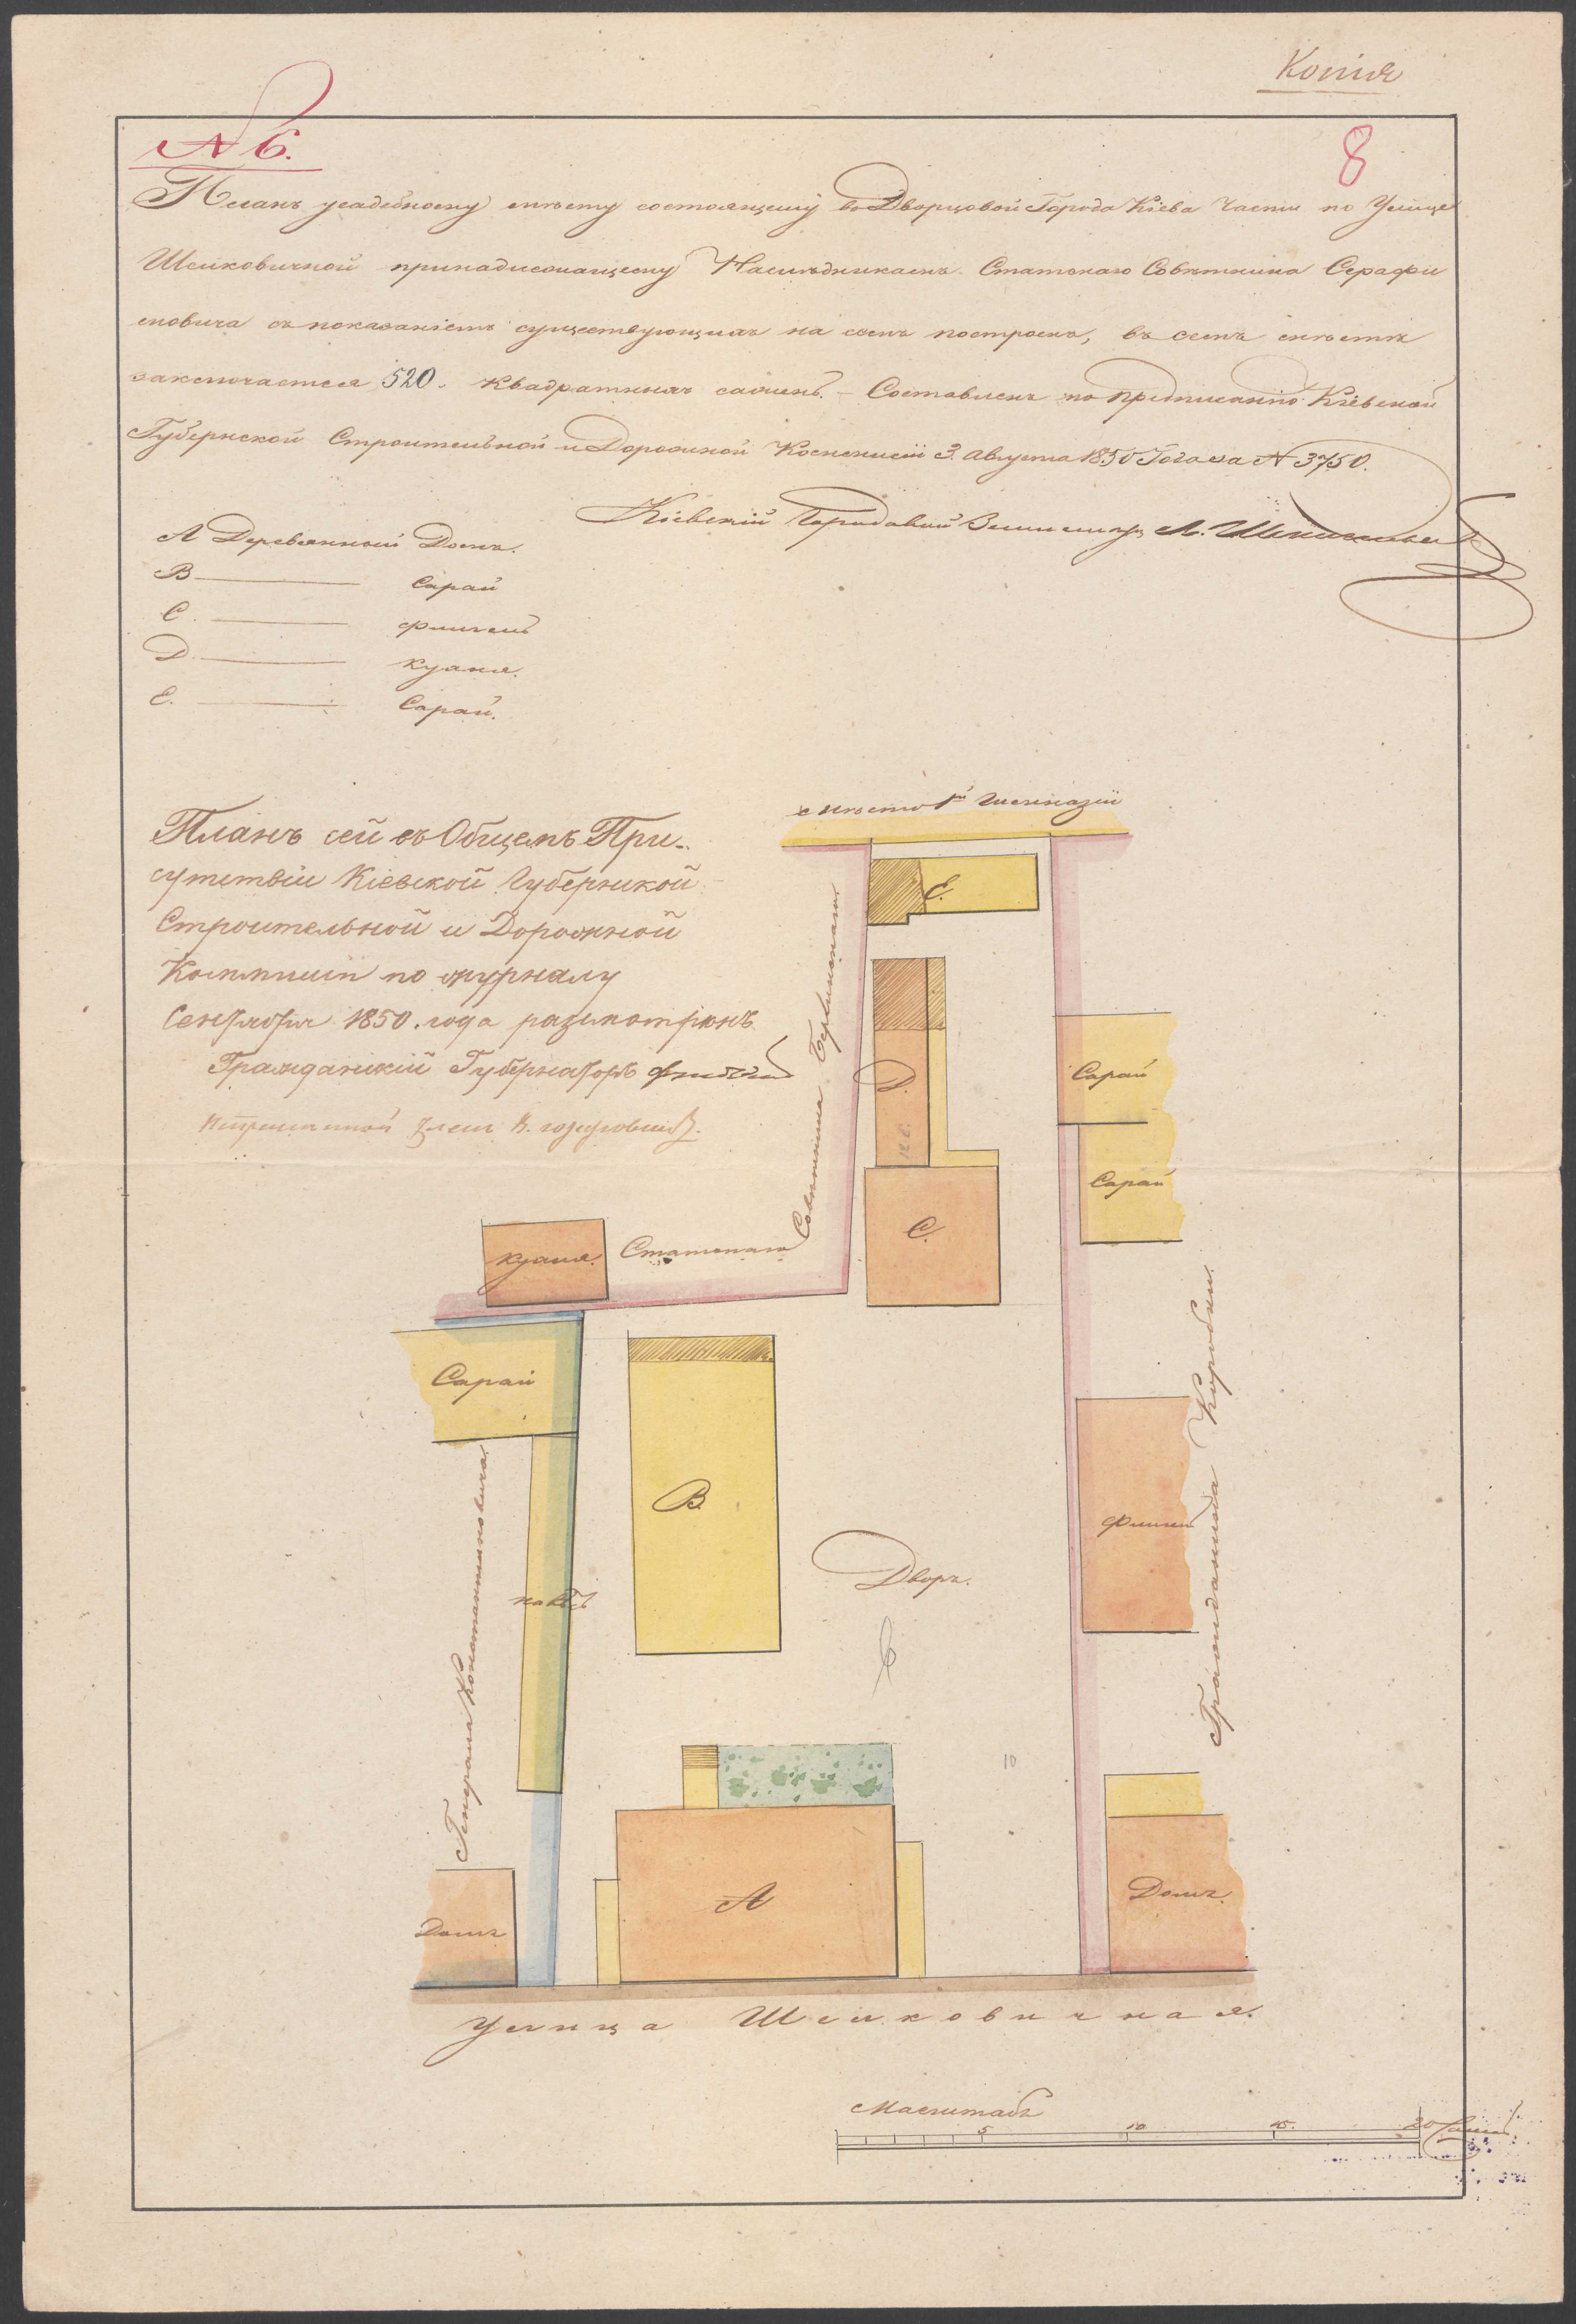 Копія
№ 6.
8
Планъ усадебному мѣсту состоящему въ Дворцовой Города Кіева Части по Улице
Шелковичной принадлежащему Наслѣдникамъ Статскаго Совѣтника Серафи
мовича съ показаніемъ существующихъ на немъ построекъ, въ семъ мѣстѣ
заключается 520. квадратныхъ сажень. — Составленъ по предписанію Кіевской
Губернской Строительной и Дорожной Коммисіи 3. Августа 1850 Года за № 3750.
Кіевскій Городовый Землемѣръ Л.
А Деревянный Домъ.
В Сарай
С. флигель
D кухня.
Е. Сарай.
Планъ сей въ Общемъ При-
сутствіи Кіевской Губернской
Строительной и Дорожной
Коммисіи по журналу
Сентября 1850. года разсмотрѣнъ
Гражданскій Губернаторъ
членъ
мѣсто 1й Гимназіи
Е.
Статскаго Совѣтника
D.
С.
Сарай
Сарай
кухня.
Сарай
В.
Дворъ.
навѣсъ
Генерала Константиновича.
флигель
Гражданина Коробки.
10
А
Домъ
Домъ.
Улица Шелковичная.
Масштабъ
5 10 15. 20 Сажень